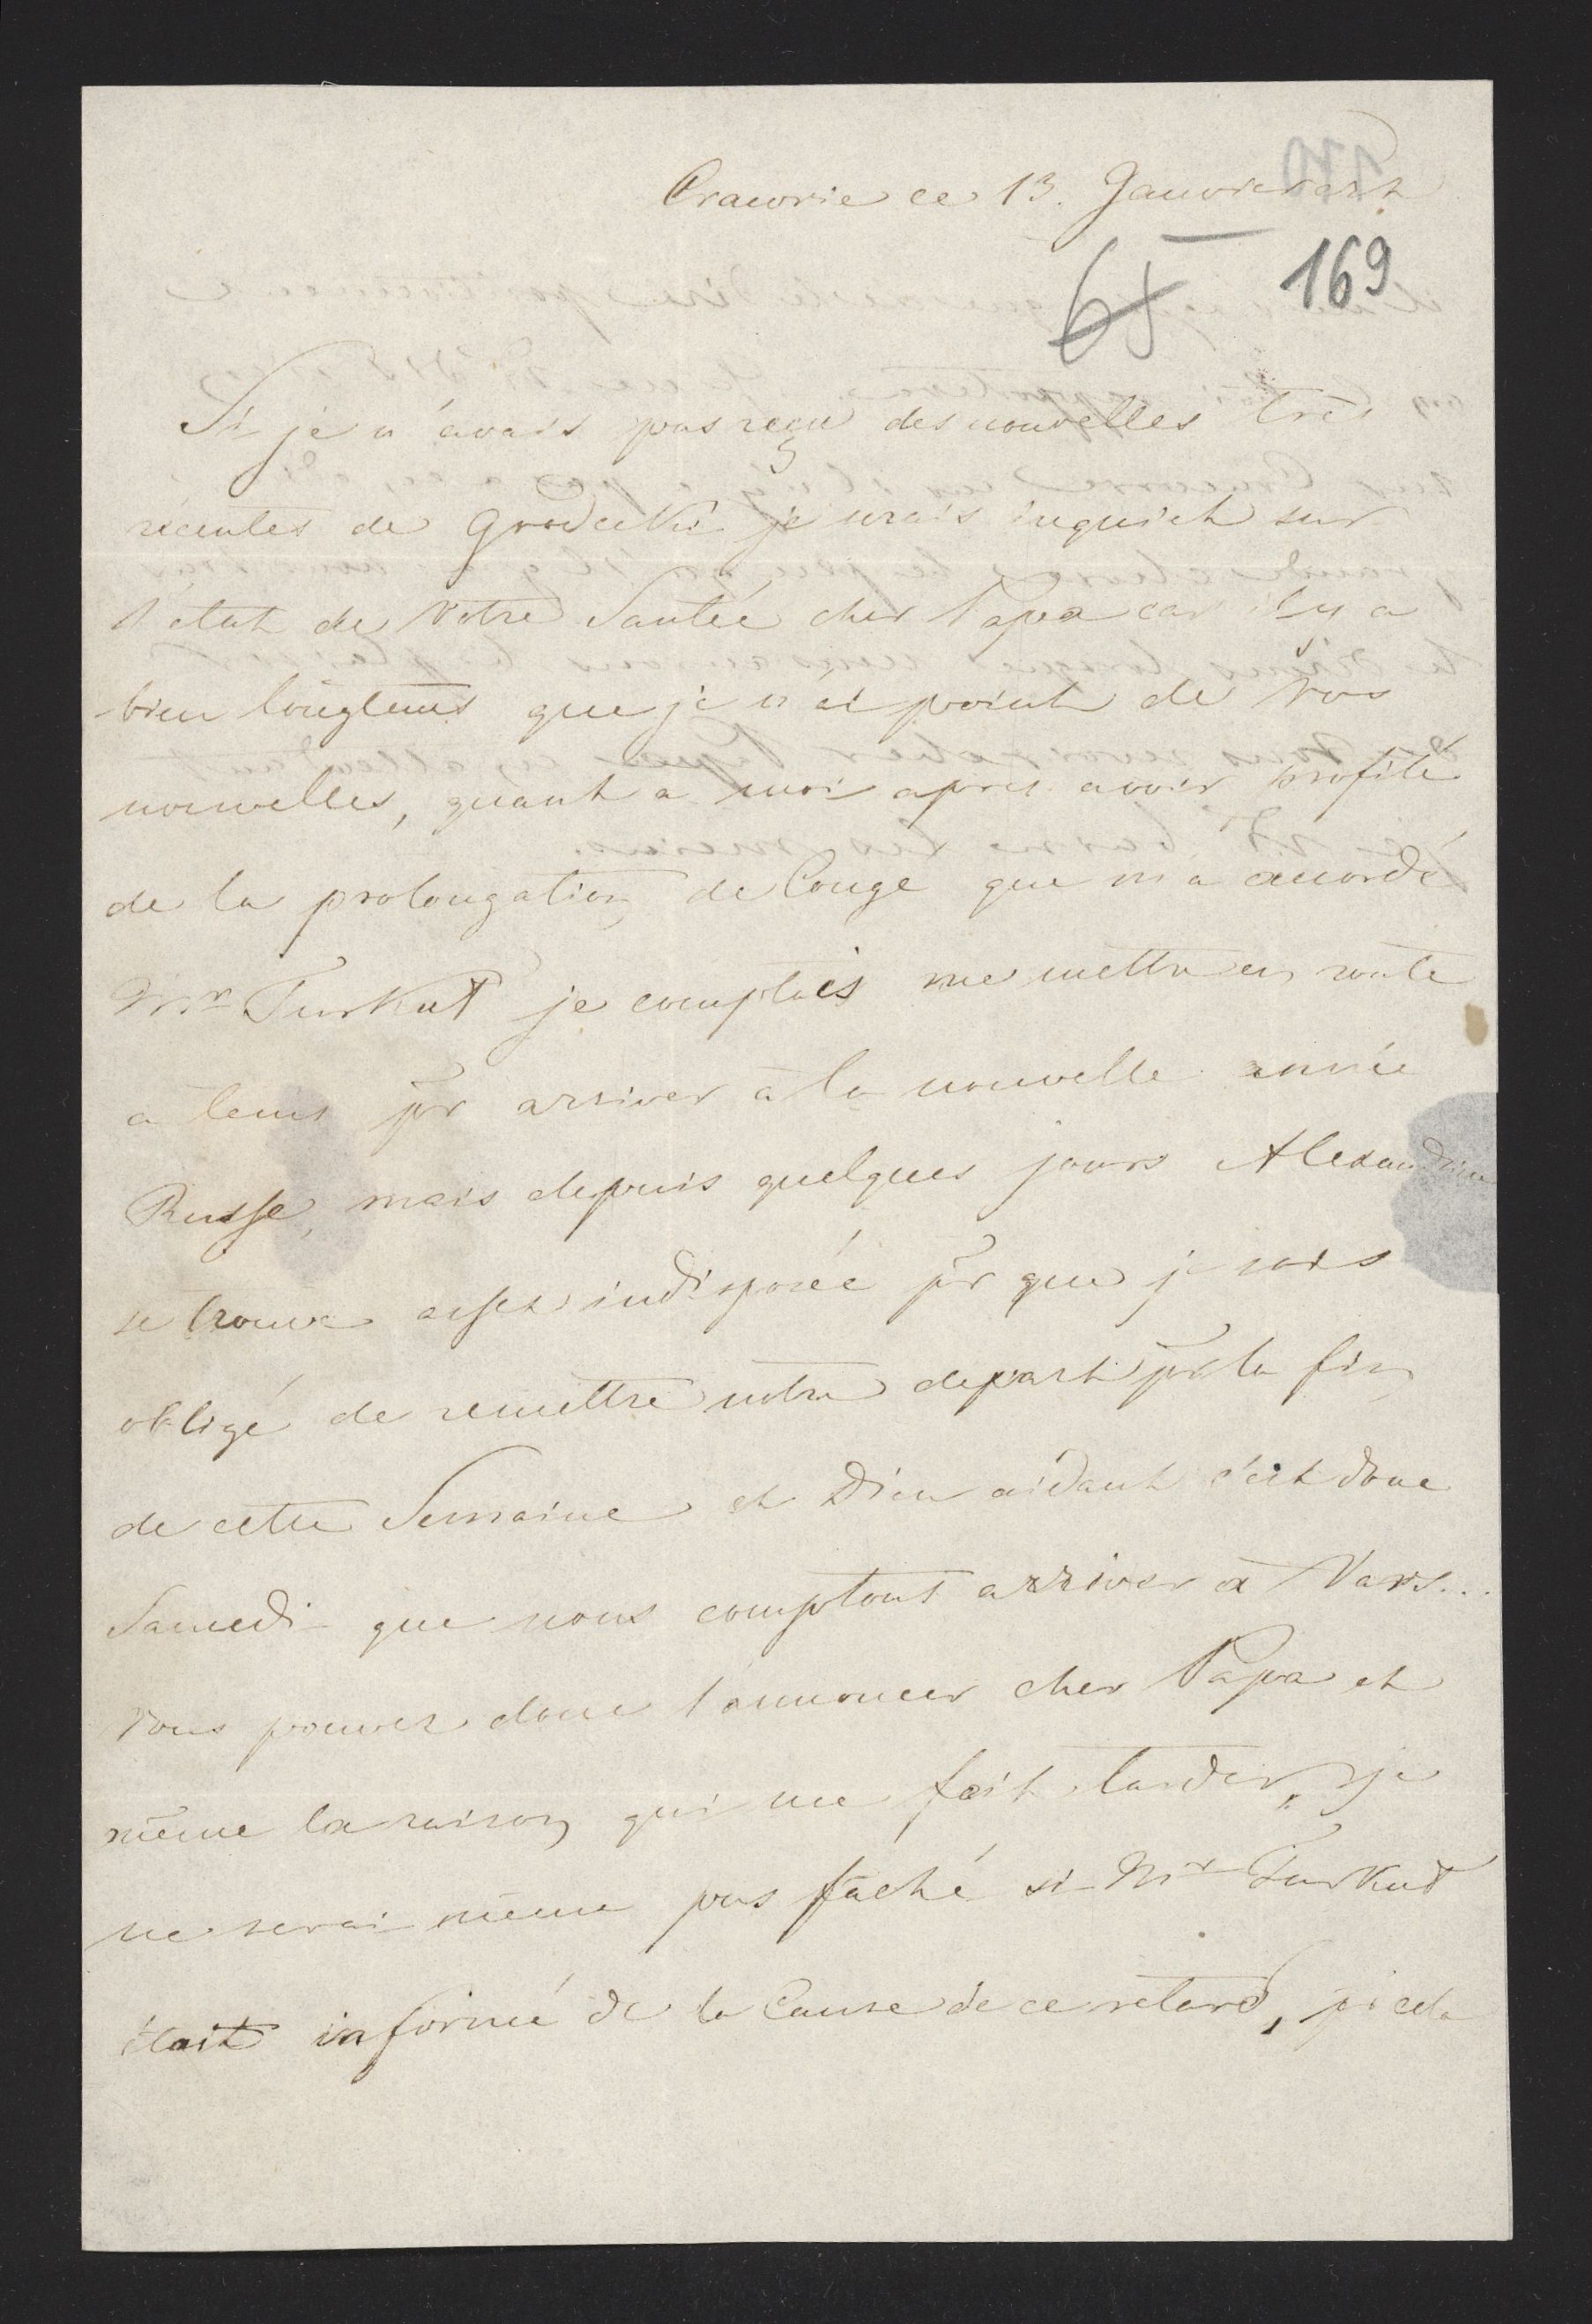 Cracovie ce 13. Janvier
169
Si je n'avais pas reçu des nouvelles très
récentes de Grodecki je serais inquiet sur
l'état de Votre Santée cher Papa car il y a
bien longtems que je n'ai point de Vos
nouvelles, quant a moi apres avoir profité
de la prolongation de Congé que m'a accordé
Mr Turkuł je comptais me mettre en route
a tems pr arriver à la nouvelle année
Russe, mais depuis quelques jours Alexandrine
se trouve assez indisposée pr que je sois
obligé de remettre notre depart pr la fin
de cette Semaine et Dieu aidant c'est donc
Samedi que nous comptons arriver à Vars...
Vous pouvez donc l'annoncer cher Papa et
même la raison qui me fait tarder, je
ne serai même pas fâché si Mr Turkuł
était informé de la Cause de ce retard, si cela